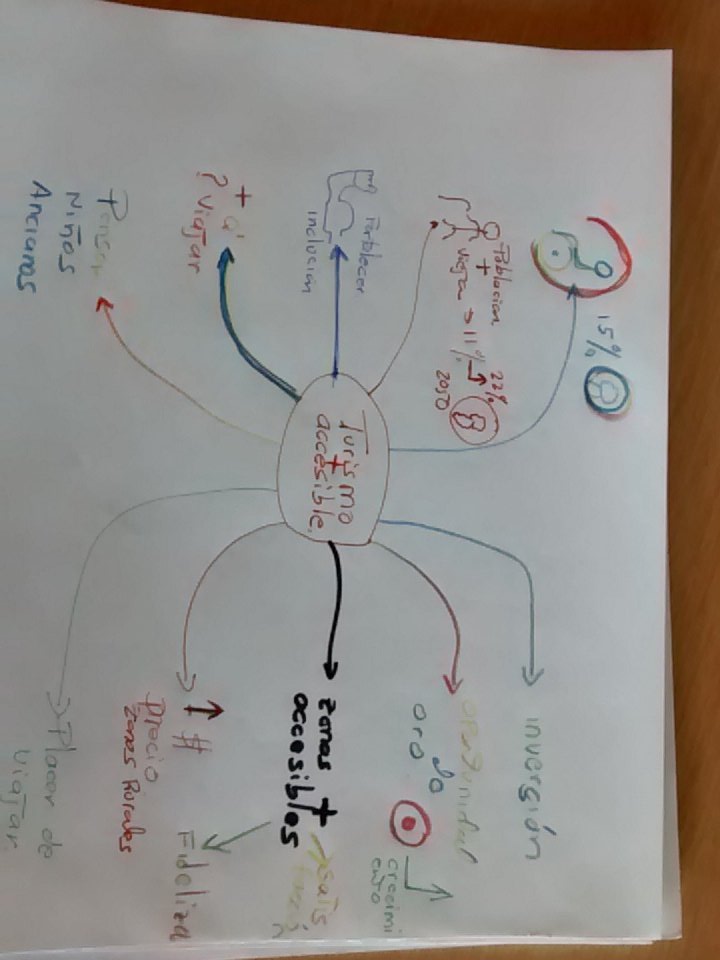 Turismo
+
accesible
15%
Población
+
viaja → 11%
22%
2050
Fortblecer
inclución
+ a'
? viajar
Pensar
Niños
Ancianos
inversión
oportunidad
de
oro
crecimi
ento
zonas +
accesibles
Fideliza
↑ #
precio
zonas Rurales
Placer de
viajar.